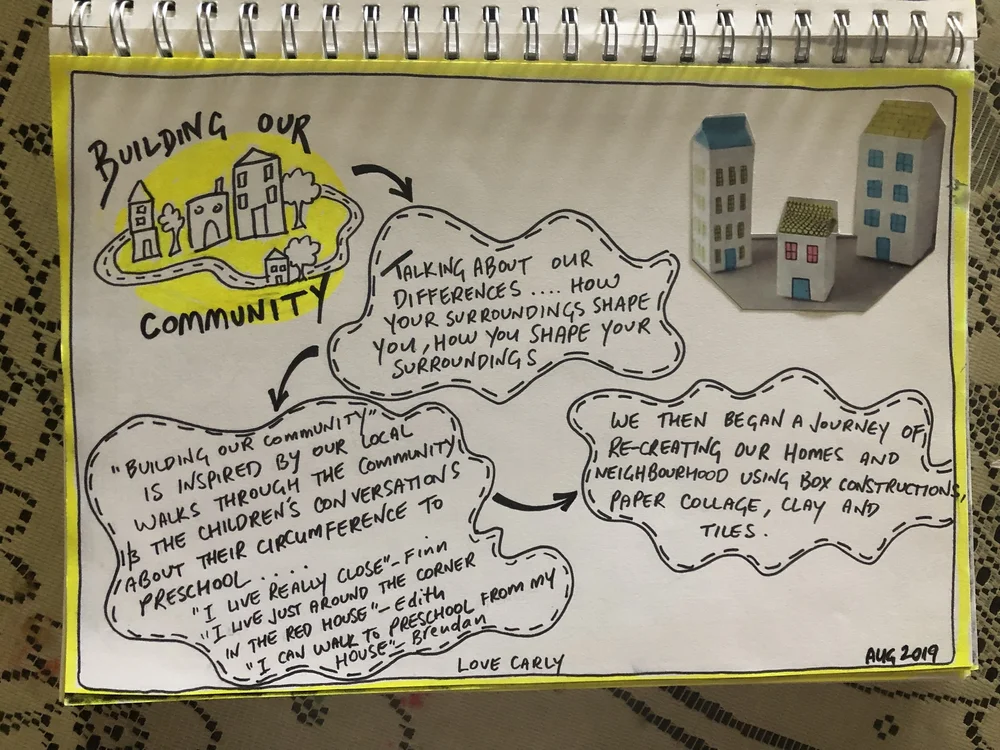 BUILDING OUR
COMMUNITY
TALKING ABOUT OUR
DIFFERENCES .... HOW
YOUR SURROUNDINGS SHAPE
YOU, HOW YOU SHAPE YOUR
SURROUNDINGS
"BUILDING OUR COMMUNITY"
IS INSPIRED BY OUR LOCAL
WALKS THROUGH THE COMMUNITY
& THE CHILDREN'S CONVERSATIONS
ABOUT THEIR CIRCUMFERENCE TO
PRESCHOOL ....
"I LIVE REALLY CLOSE" - Finn
"I LIVE JUST AROUND THE CORNER
IN THE RED HOUSE" - Edith
"I CAN WALK TO PRESCHOOL FROM MY
HOUSE" - Brendan
WE THEN BEGAN A JOURNEY OF
RE-CREATING OUR HOMES AND
NEIGHBOURHOOD USING BOX CONSTRUCTIONS,
PAPER COLLAGE, CLAY AND
TILES.
LOVE CARLY
AUG 2019